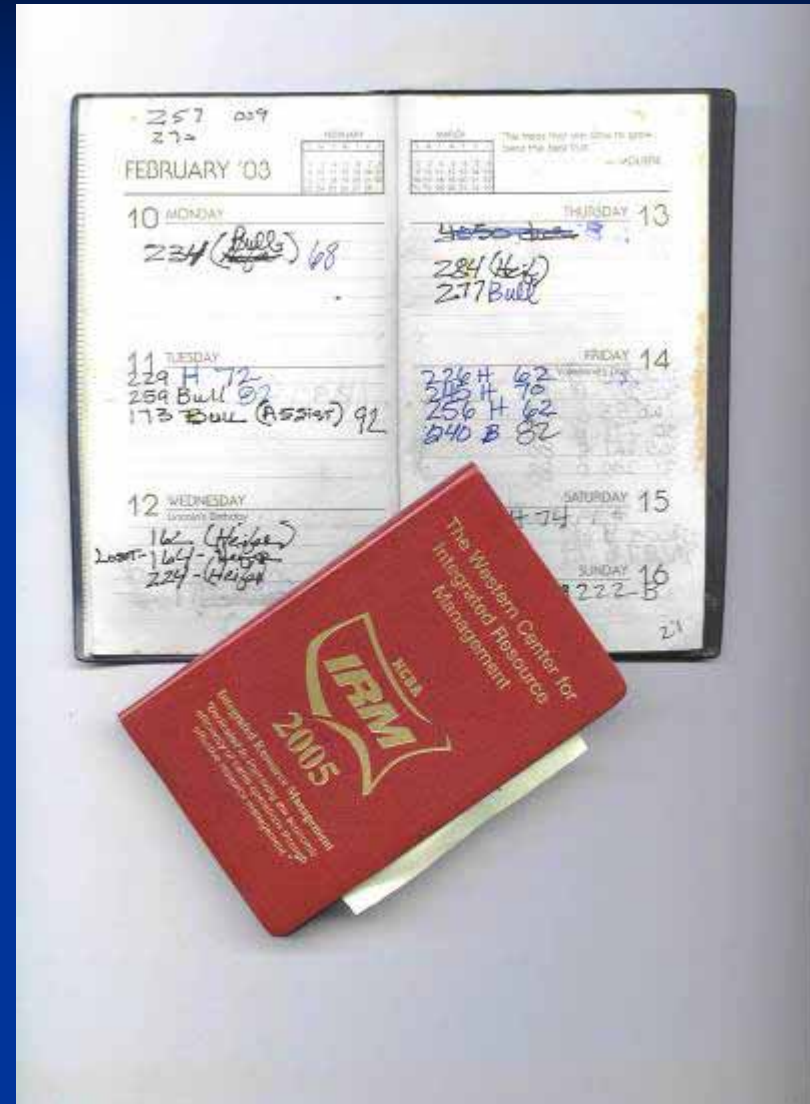 257 009
272
FEBRUARY '03
FEBRUARY
10 MONDAY
234 (Bulls) 68
11 TUESDAY
229 H 72
259 Bull 92
173 Bull (Assist) 92
12 WEDNESDAY
Lincoln's Birthday
162 (Heifer)
Lost - 164 - Heifer
224 - (Heifer)
MARCH
THURSDAY 13
284 (Heif)
277 Bull
FRIDAY 14
Valentine's Day
226 H 62
245 H 90
256 H 62
240 B 82
SATURDAY 15
H 74
SUNDAY 16
222 - B
21
The Western Center for
Integrated Resource
Management
NCBA
IRM
2005
Integrated Resource Management